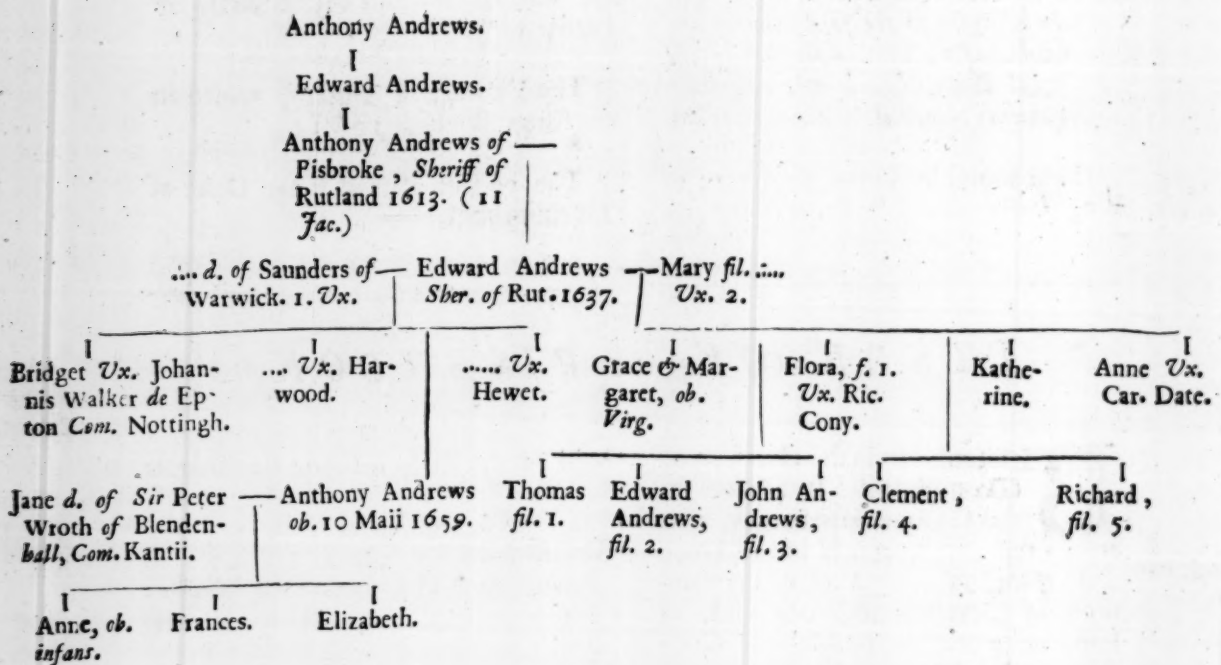 Anthony Andrews.
Edward Andrews.
Anthony Andrews of
Pisbroke, Sheriff of
Rutland 1613. (11
Jac.)
.:... d. of Saunders of
Warwick. 1. Ux.
Edward Andrews
Sher. of Rut. 1637.
Mary fil. .:...
Ux. 2.
Bridget Ux. Johan-
nis Walker de Ep-
ton Com. Nottingh.
.... Ux. Har-
wood.
...... Ux.
Hewet.
Grace & Mar-
garet, ob.
Virg.
Flora, f. 1.
Ux. Ric.
Cony.
Kathe-
rine.
Anne Ux.
Car. Date.
Jane d. of Sir Peter
Wroth of Blenden-
ball, Com. Kantii.
Anthony Andrews
ob. 10 Maii 1659.
Thomas
fil. 1.
Edward
Andrews,
fil. 2.
John An-
drews,
fil. 3.
Clement,
fil. 4.
Richard,
fil. 5.
Anne, ob.
infans.
Frances.
Elizabeth.